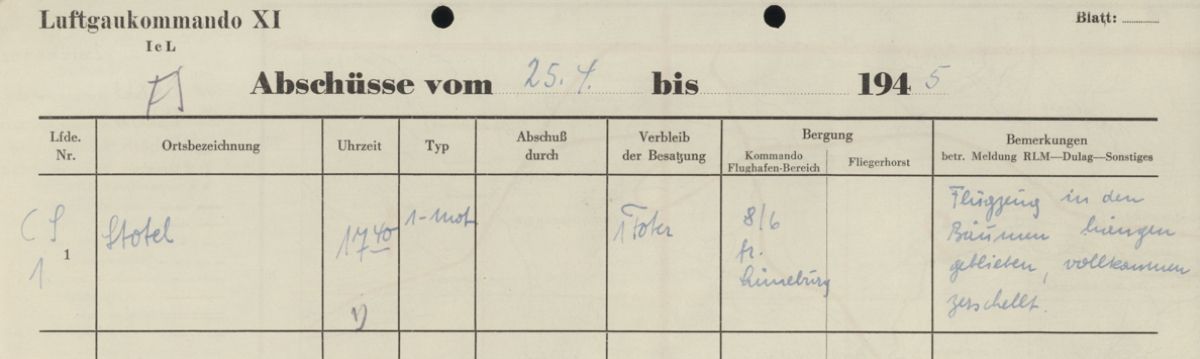 Luftgaukommando XI
Blatt:
I c L
Abschüsse vom 25.4. bis 1945
Lfde. Nr.
Ortsbezeichnung
Uhrzeit
Typ
Abschuß durch
Verbleib der Besatzung
Bergung
Kommando Flughafen-Bereich
Fliegerhorst
Bemerkungen
betr. Meldung RLM—Dulag—Sonstiges
1
Stotel
17 40
1-mot
1 Toter
8/6
fr.
Lüneburg
Flugzeug in den
Bäumen hängen
geblieben, vollkommen
zerschellt.
1)